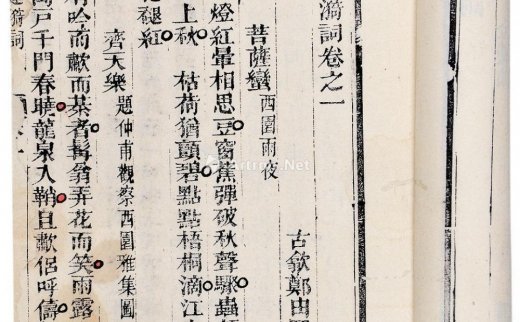 漪詞卷之一
古歙鄭由
菩薩蠻 西園雨夜
燈紅暈相思豆窗蕉彈破秋聲驟蟲
上秋 枯荷猶顫碧點點梧桐滴江
褪紅
齊天樂 題仲甫觀察西園雅集圖
吟而歗而棊者髯翁弄花而笑雨露
萬戸千門春曉龍泉入鞘且歗侶呼儔
漪詞